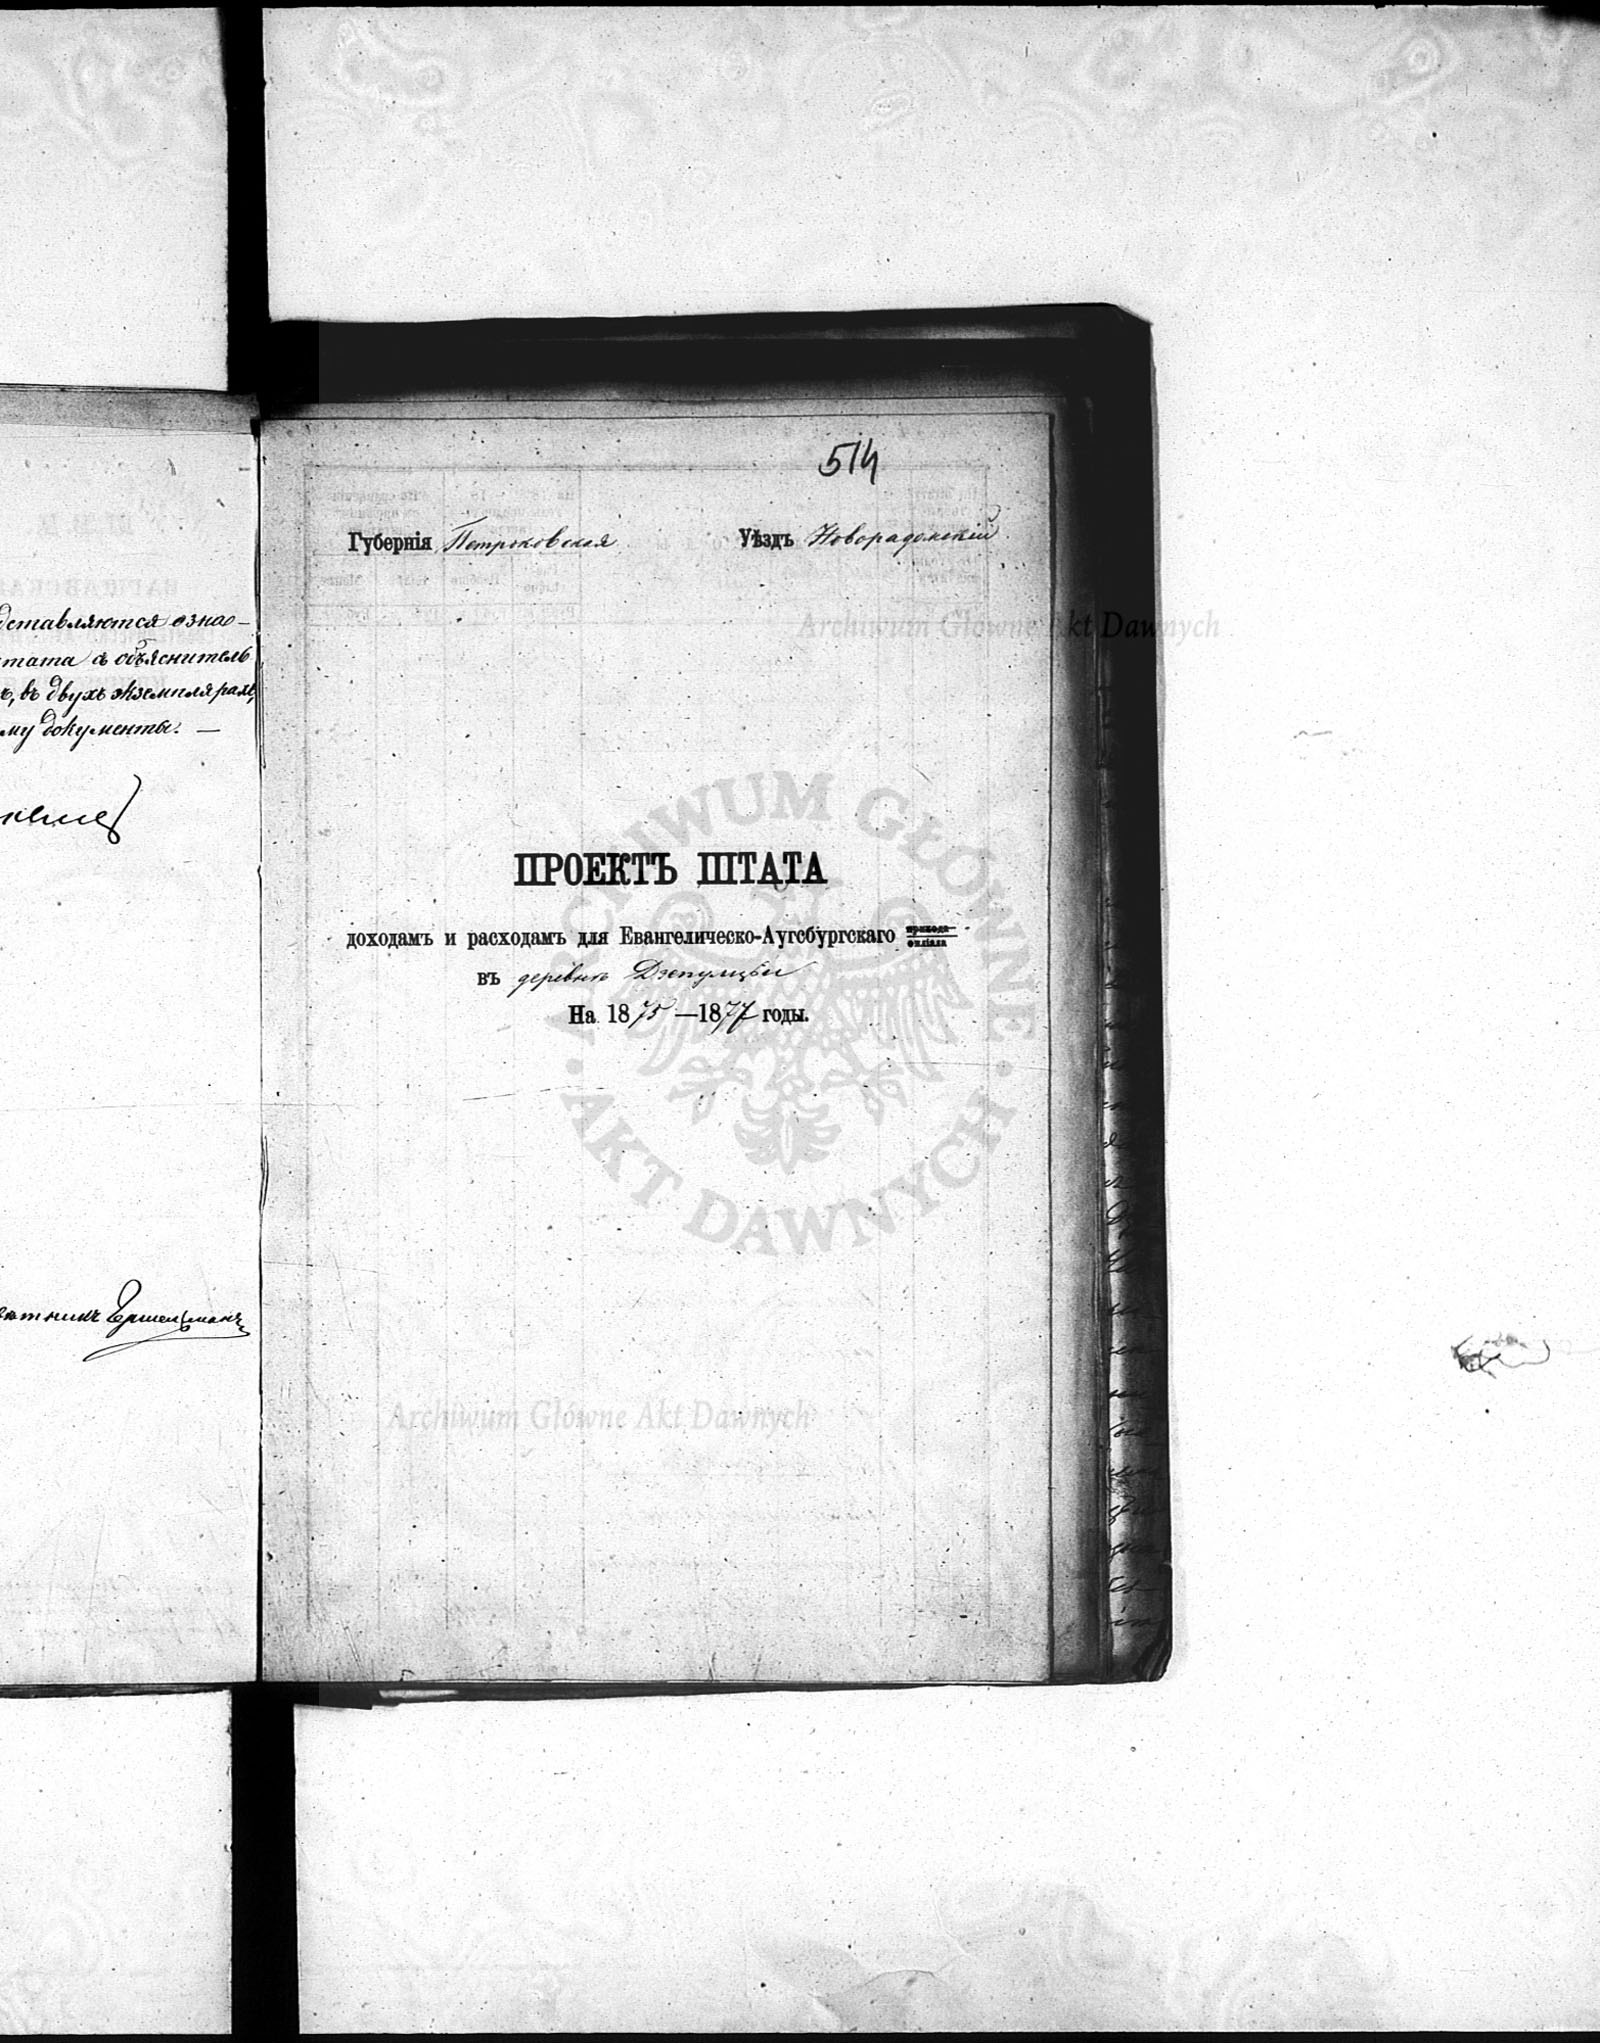 ставляются озна-
тата с объяснитель
въ двухъ экземплярахъ,
му документы. —
514
Губернія Петроковская Уѣздъ Новорадомскій
ПРОЕКТЪ ШТАТА
доходамъ и расходамъ для Евангелическо-Аугсбургскаго прихода филіала
въ деревнѣ Дзепулцы
На 1875 —1877 годы.
ARCHIWUM GŁÓWNE · AKT DAWNYCH ·
Archiwum Główne Akt Dawnych
Archiwum Główne Akt Dawnych